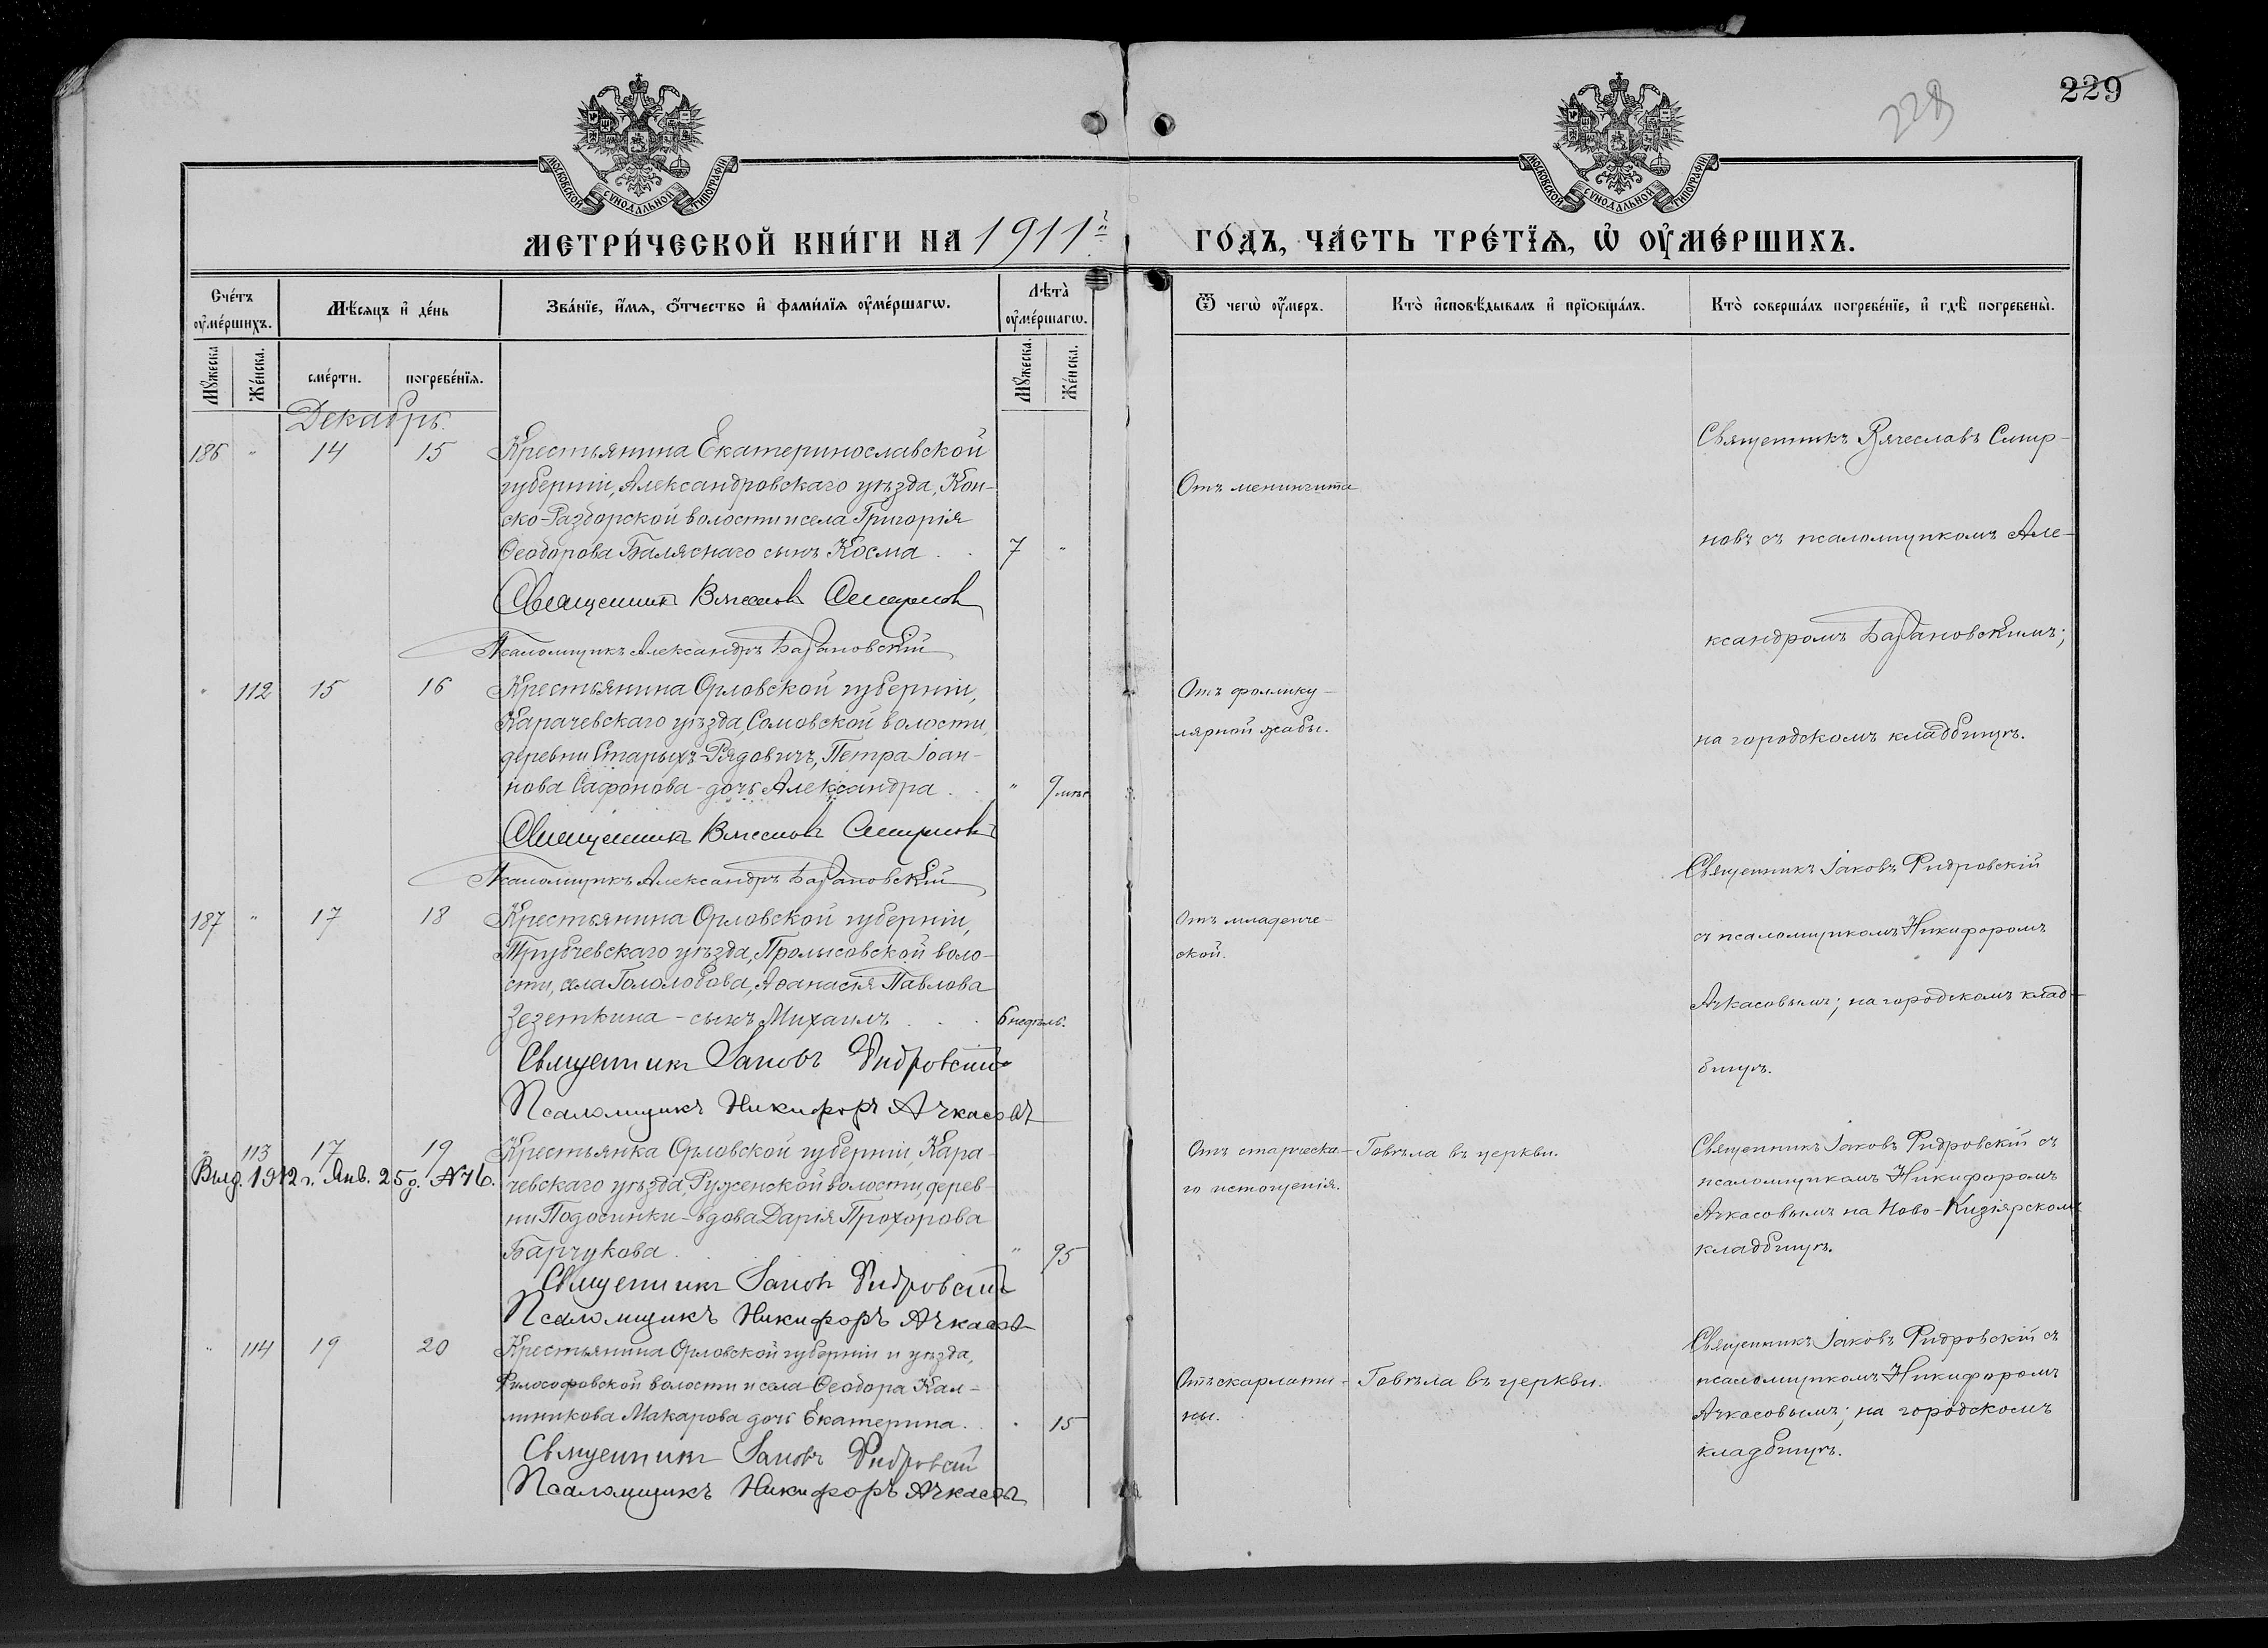 229
228
МОСКОВСКОЙ СѴНОДАЛЬНОЙ ТИПОГРАФІИ
МОСКОВСКОЙ СѴНОДАЛЬНОЙ ТИПОГРАФІИ
МЕТРИ́ЧЕСКОЙ КНИ́ГИ НА 1911 г.
ГО́ДЪ, ЧА́СТЬ ТРЕ́ТЇѦ, Ѡ҆ ОУ҆МЕ́РШИХЪ.
Сче́тъ оу҆ме́ршихъ.
Мѣ́сяцъ и҆ де́нь
Зва́нїе, и҆́мѧ, ѻ҆́тчество и҆ фами́лїѧ оу҆ме́ршагѡ.
Лѣта̀ оу҆ме́ршагѡ.
Ѿ чегѡ̀ оу҆́меръ.
Кто̀ и҆сповѣ́дывалъ и҆ прїѻбща́лъ.
Кто̀ соверша́лъ погребе́нїе, и҆ гдѣ̀ погребены̀.
Мꙋ́жеска
Же́нска.
сме́рти.
погребе́нїѧ.
Мꙋ́жеска.
Же́нска.
Декабрь.
186 " 14 15 Крестьянина Екатеринославской
губерніи, Александровскаго уѣзда, Кон-
ско-Раздорской волости и села Григорія
Ѳеодорова Баляснаго сынъ Косма . . 7 "
Священникъ Вячеславъ Смирновъ
Псаломщикъ Александръ Базановскій
Отъ менингита
Священникъ Вячеславъ Смир-
новъ съ псаломщикомъ Але-
ксандромъ Базановскимъ;
на городскомъ кладбищѣ.
" 112 15 16 Крестьянина Орловской губерніи,
Карачевскаго уѣзда, Сомовской волости,
деревни Старыхъ-Рядовичъ, Петра Іоан-
нова Сафонова - дочь Александра . . " 9 мѣс.
Священникъ Вячеславъ Смирновъ
Псаломщикъ Александръ Базановскій
Отъ фоллику-
лярной жабы.
187 " 17 18 Крестьянина Орловской губерніи,
Трубчевскаго уѣзда, Промысовской воло-
сти, села Гололобова, Аѳанасія Павлова
Зезеткина - сынъ Михаилъ . . . 6 недѣль.
Священникъ Іаковъ Ридровскій
Псаломщикъ Никифоръ Ачкасовъ
Отъ младенче-
ской.
Священникъ Іаковъ Ридровскій
съ псаломщикомъ Никифоромъ
Ачкасовымъ; на городскомъ клад-
бищѣ.
" 113 17 19 Крестьянка Орловской губерніи, Кара-
Выд. 1912 г. Янв. 25 д. № 76.
чевскаго уѣзда, Руженской волости, дерев-
ни Подосинки - вдова Дарія Прохорова
Барчукова . " 95
Священникъ Іаковъ Ридровскій
Псаломщикъ Никифоръ Ачкасовъ
Отъ старческа-
го истощенія.
Говѣла въ церкви.
Священникъ Іаковъ Ридровскій съ
псаломщикомъ Никифоромъ
Ачкасовымъ на Ново-Кизіярскомъ
кладбищѣ.
" 114 19 20 Крестьянина Орловской губерніи и уѣзда,
Философовской волости и села Ѳеодора Кал-
линикова Макарова дочь Екатерина . . " 15
Священникъ Іаковъ Ридровскій
Псаломщикъ Никифоръ Ачкасовъ
Отъ скарлати-
ны.
Говѣла въ церкви.
Священникъ Іаковъ Ридровскій съ
псаломщикомъ Никифоромъ
Ачкасовымъ; на городскомъ
кладбищѣ.